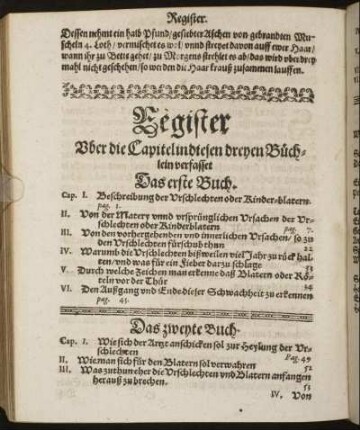 Register.
Dessen nehmt ein halb Pfund/ gesiebter Aschen von gebrandten Mu-
scheln 4. Loth/ vermischet es wol/ vnnd strewet davon auff ewer Haar/
wann ihr zu Bette gehet/ zu Morgens strehlet es ab/ das wird vber drey
mahl nicht geschehen/ so werden die Haar krauß zusammen lauffen.
Register
Vber die Capitel in diesen dreyen Büch-
lein verfasset
Das erste Buch.
Cap. I. Beschreibung der Vrschlechten oder Kinder-blatern.
pag. 1.
II. Von der Matery vnnd vrsprünglichen Vrsachen der Vr-
schlechten oder Kinderblatern pag. 7.
III. Von den vorhergehenden vnd innerlichen Vrsachen/ so zu
den Vrschlechten fürschub thun 22
IV. Warumb die Vrschlechten bißweilen viel Jahr zu rück hal-
ten/ vnd was für ein Fieber darzu schlage
V. Durch welche Zeichen man erkenne daß Blatern oder Rö-
teln vor der Thür 34
VI. Den Außgang vnd Ende dieser Schwachheit zu erkennen
pag. 45.
Das zweyte Buch.
Cap. I. Wie sich der Arzt anschicken sol zur Heylung der Vr-
schlechten Pag. 49
II. Wie man sich für den Blatern sol verwahren 52
III. Was zuthun eher die Vrschlechten vnd Blatern anfangen
herauß zu brechen. 53
IV. Von